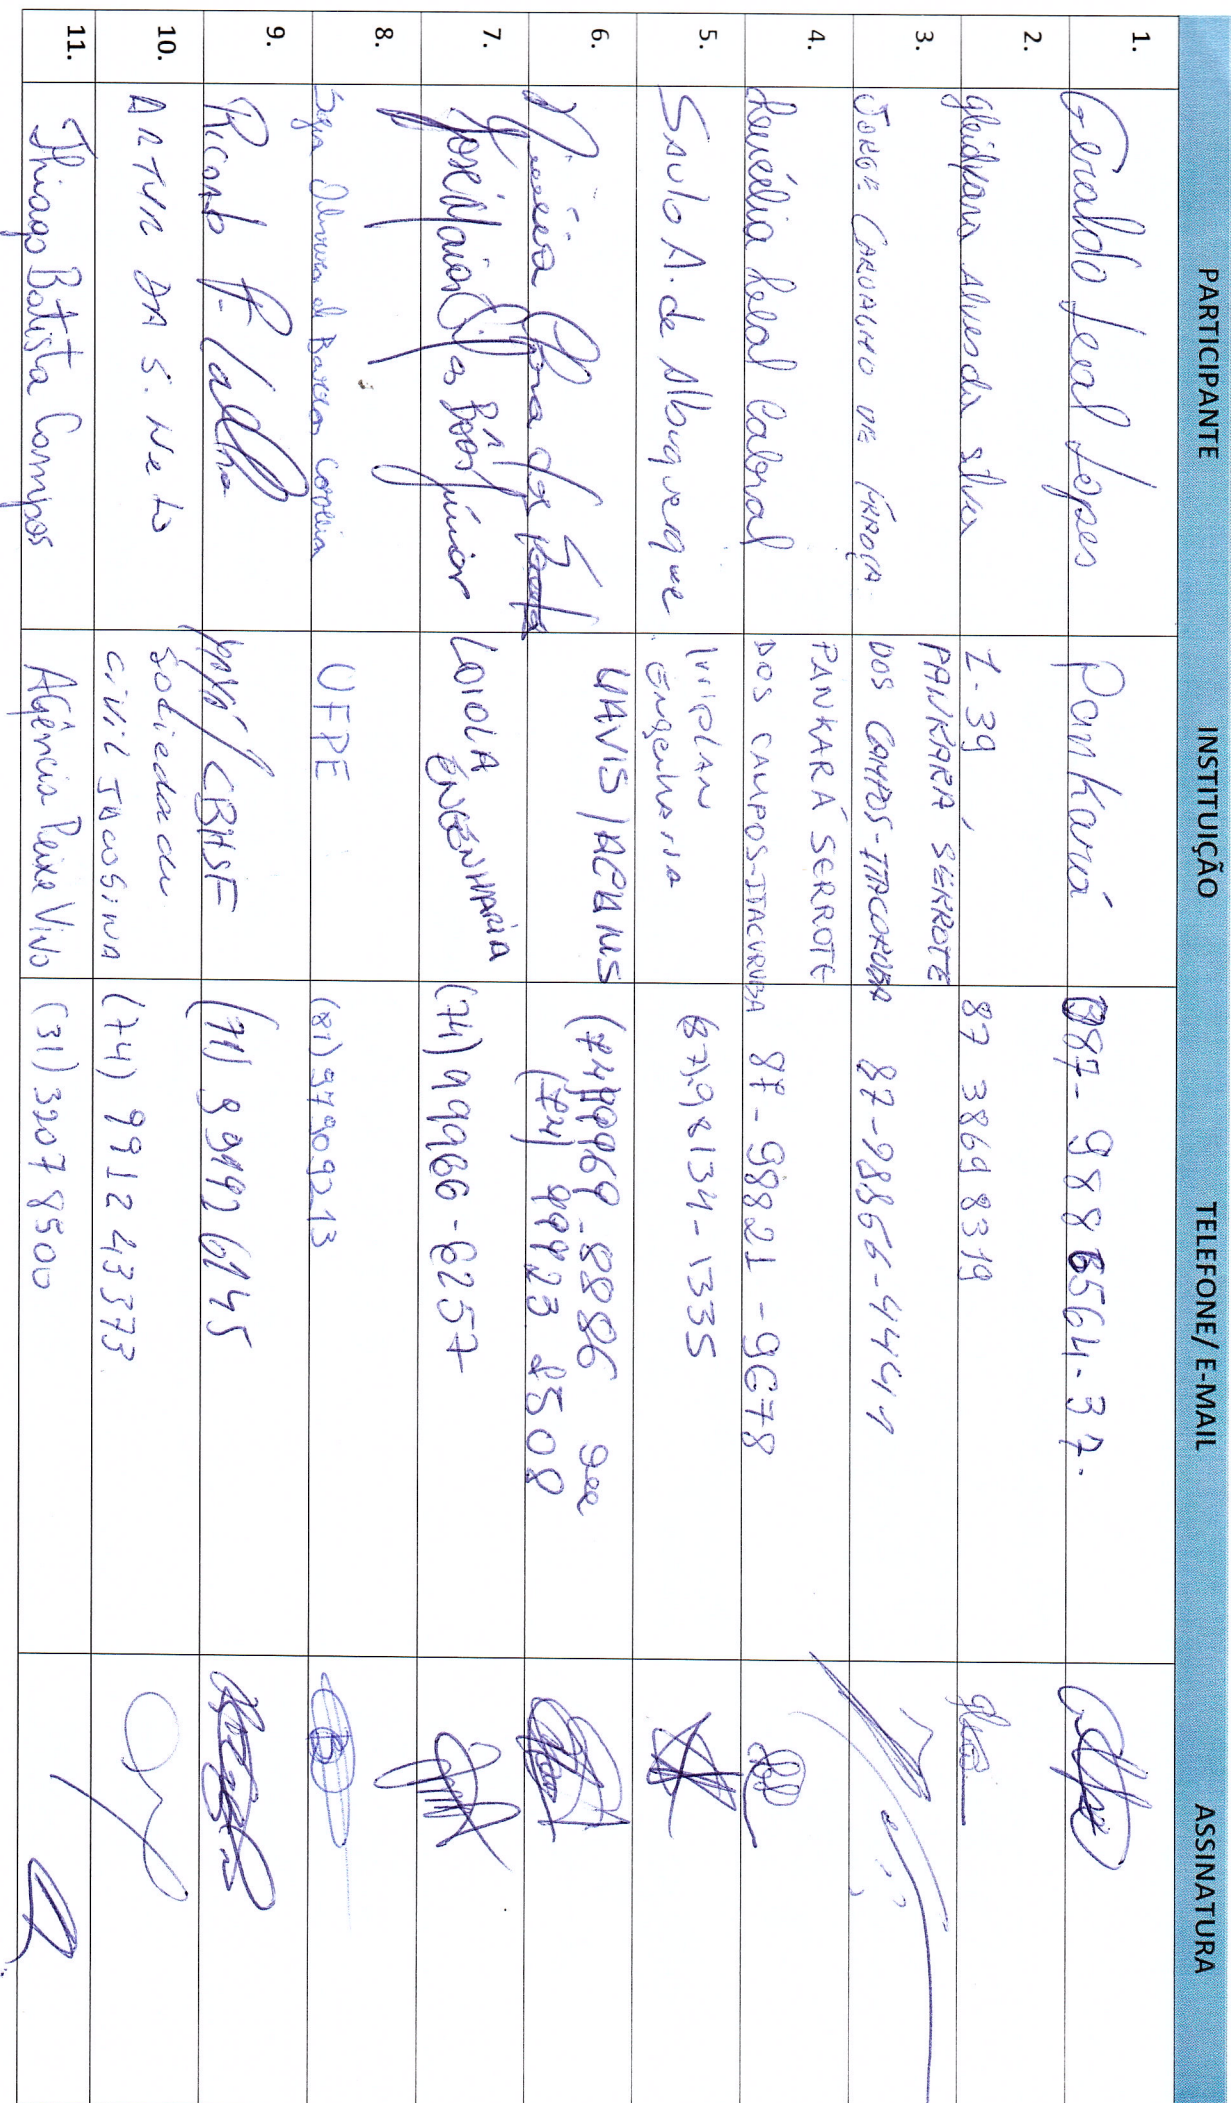 PARTICIPANTE INSTITUIÇÃO TELEFONE/ E-MAIL ASSINATURA
1. Geraldo Leal Lopes Pankará 087-988 6564-37.
2. Gleidyana Alves da Silva 1-39 87 3869 8319
3. JORGE CARVALHO DE PANKARÁ SERROTE
DOS CAMPOS-ITACURUBA 87-98866-4441
4. Lucélia Leal Cabral PANKARÁ SERROTE
DOS CAMPOS-ITACURUBA 87-98821-9678
5. Saulo A. de Albuquerque Engenharia (87)98134-1335
6. dos Santos (74)99969-8886
(74) 99923 8508
7. José Júnior LOIOLA
ENGENHARIA (74) 99966-6257
8. de Barros Correia UFPE (81) 979092213
9. Ricardo /CBHSF (71) 99192 6145
10. ARTUR DA S. Neto Sociedade
civil (74) 9912 43373
11. Thiago Batista Campos Agência Peixe Vivo (31) 3207 8500